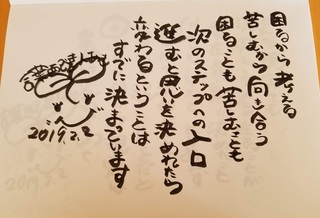 困るから考える
苦しむから向き合う
困ることも苦しむことも
次のステップへの入口
進むと思いを決めれたら
変わるということは
すでに決まっています
2019.2.2